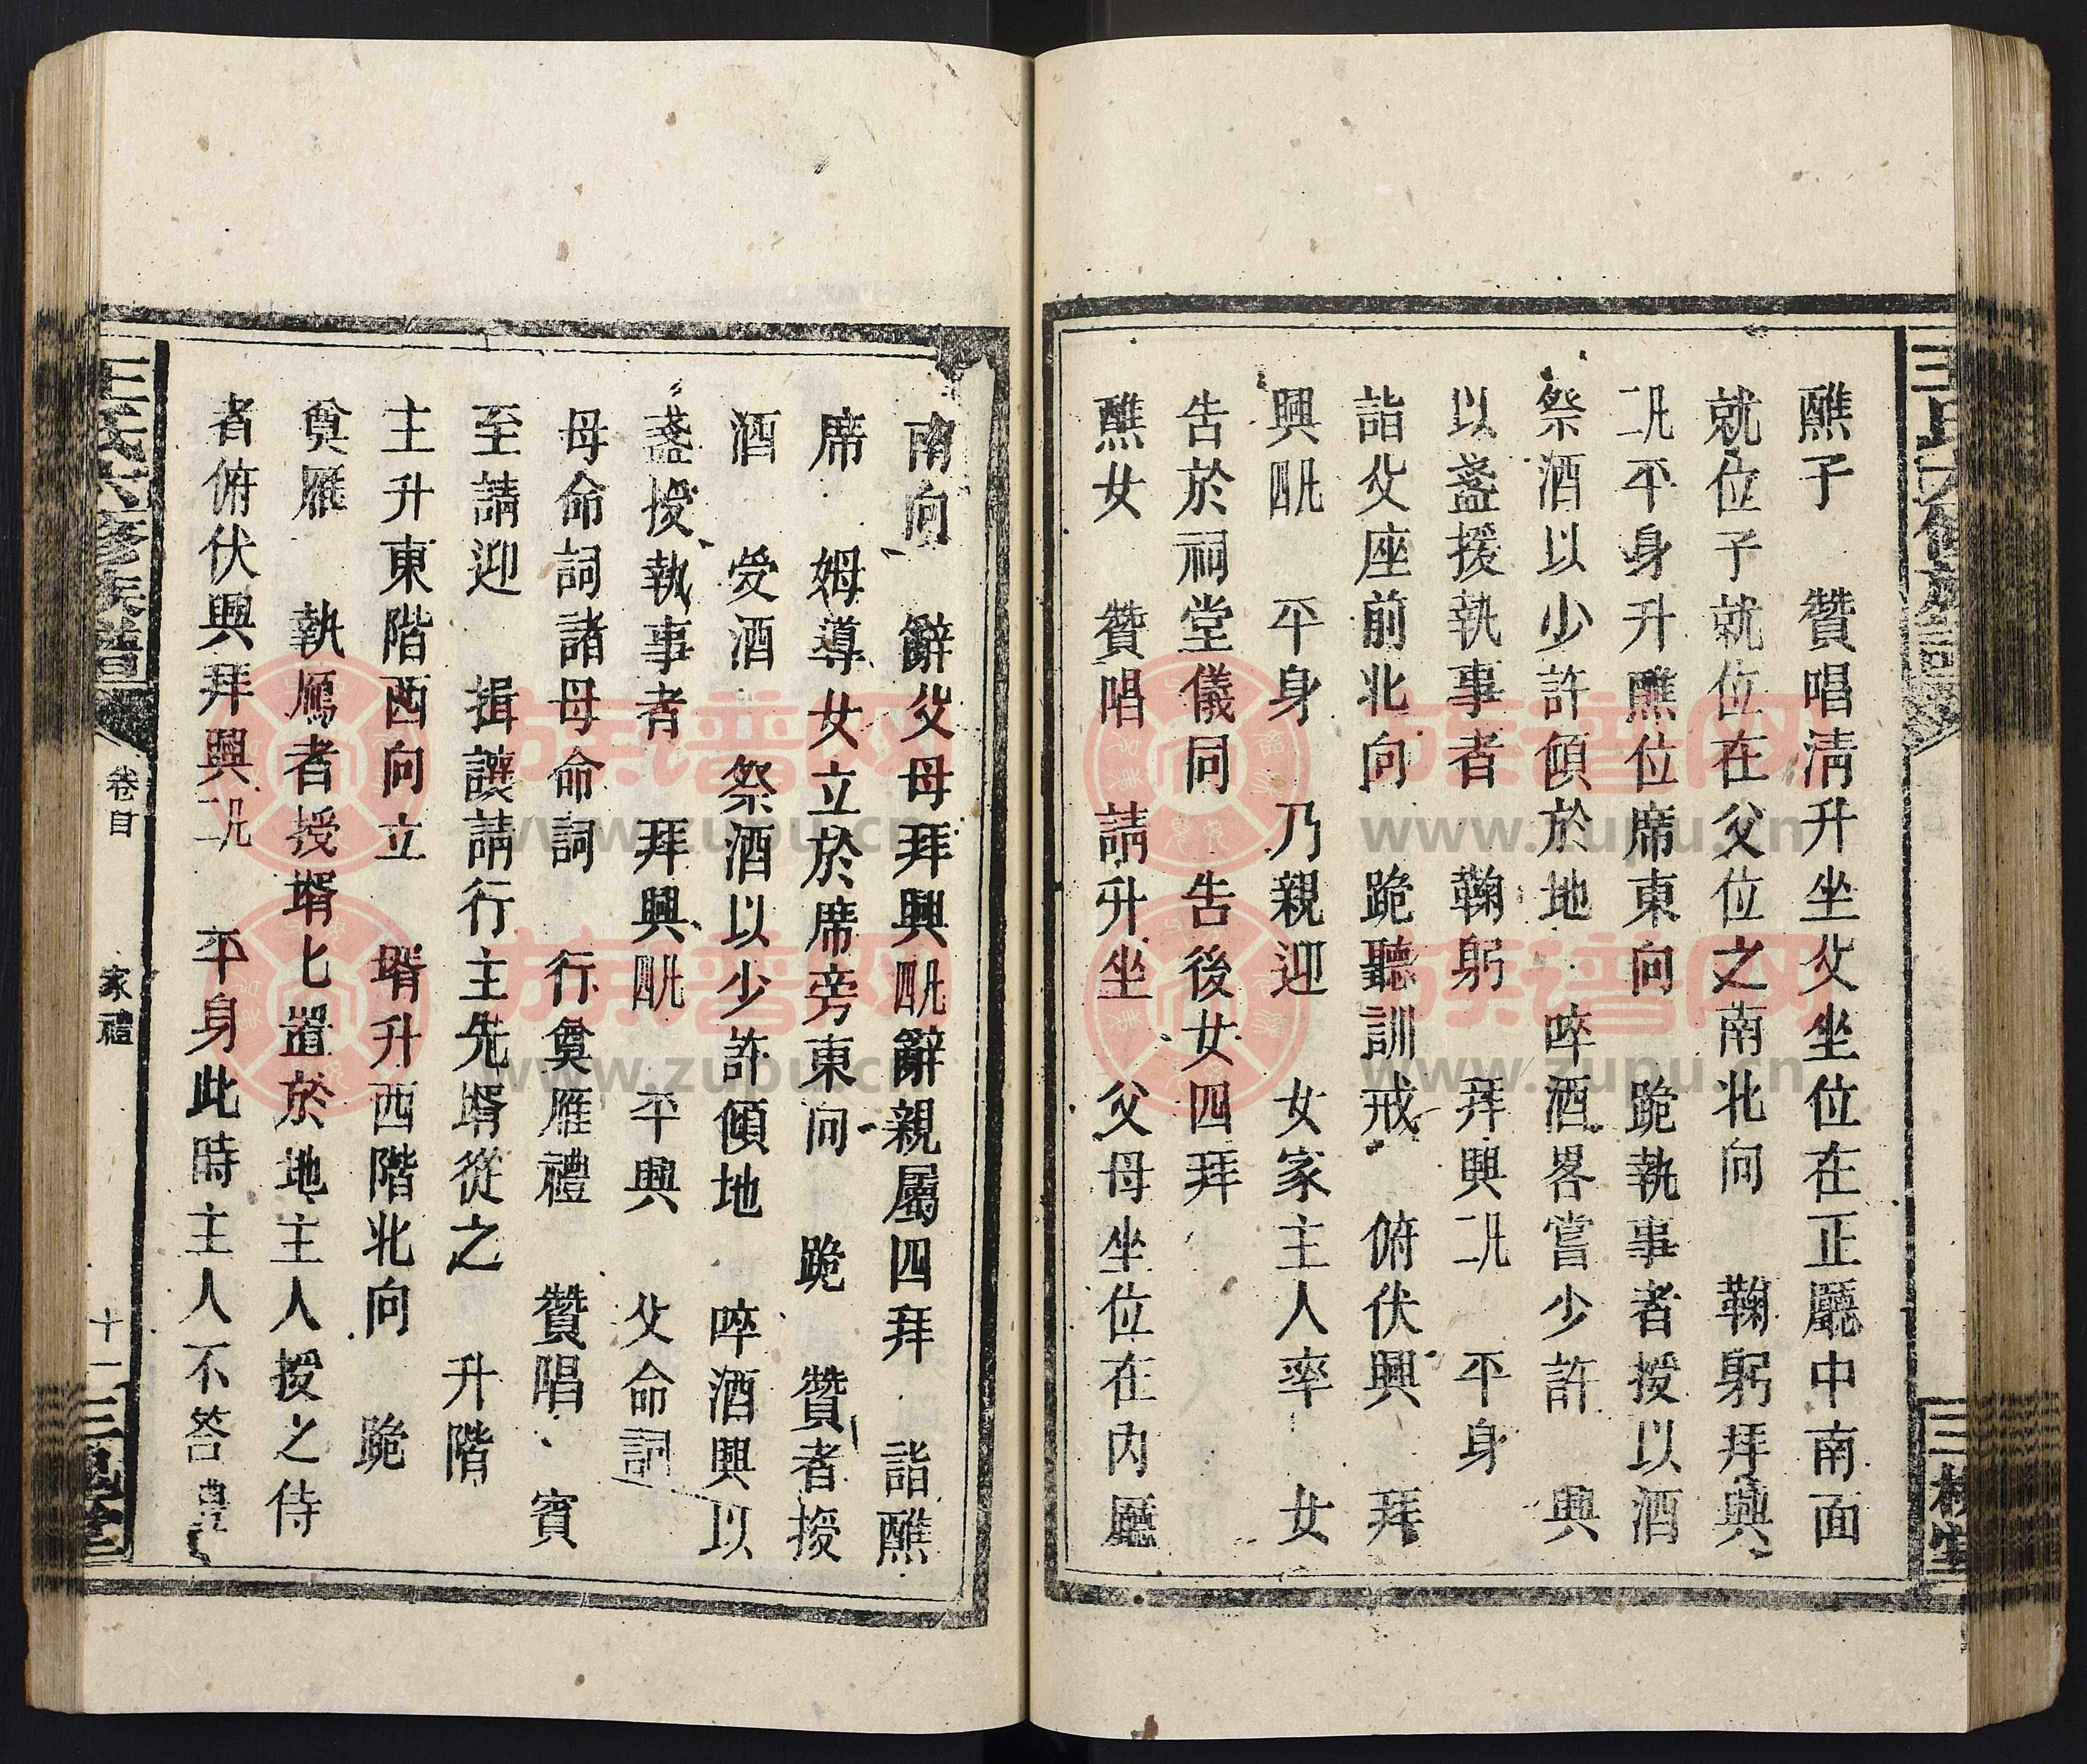 醮子　贊唱淸升坐父坐位在正廳中南面
就位子就位在父位之南北向　鞠躬拜興
二凡平身升醮位席東向　跪執事者授以酒
祭酒以少許傾於地　啐酒畧嘗少許　興
以盞授執事者　鞠躬　拜興二凡　平身
詣父座前北向　跪聽訓戒　俯伏興　拜
興四凡　平身　乃親迎　女家主人率　女
告於祠堂儀同　告後女四拜
醮女　贊唱　請升坐　父母坐位在內廳
南向　辭父母拜興四凡辭親屬四拜　詣醮
席　姆導女立於席旁東向　跪　贊者授
酒　受酒　祭酒以少許傾地　啐酒興以
盞授執事者　拜興四凡　平興　父命詞
母命詞諸母命詞　行奠雁禮　贊唱　賓
至請迎　揖讓請行主先壻從之　升階
主升東階西向立　壻升西階北向　跪
奠雁　執鴈者授壻匕置於地主人授之侍
者俯伏興拜興二凡　平身此時主人不答
王氏六修族譜
卷目
家禮
十一
三槐堂
www.zupu.cn
族譜网